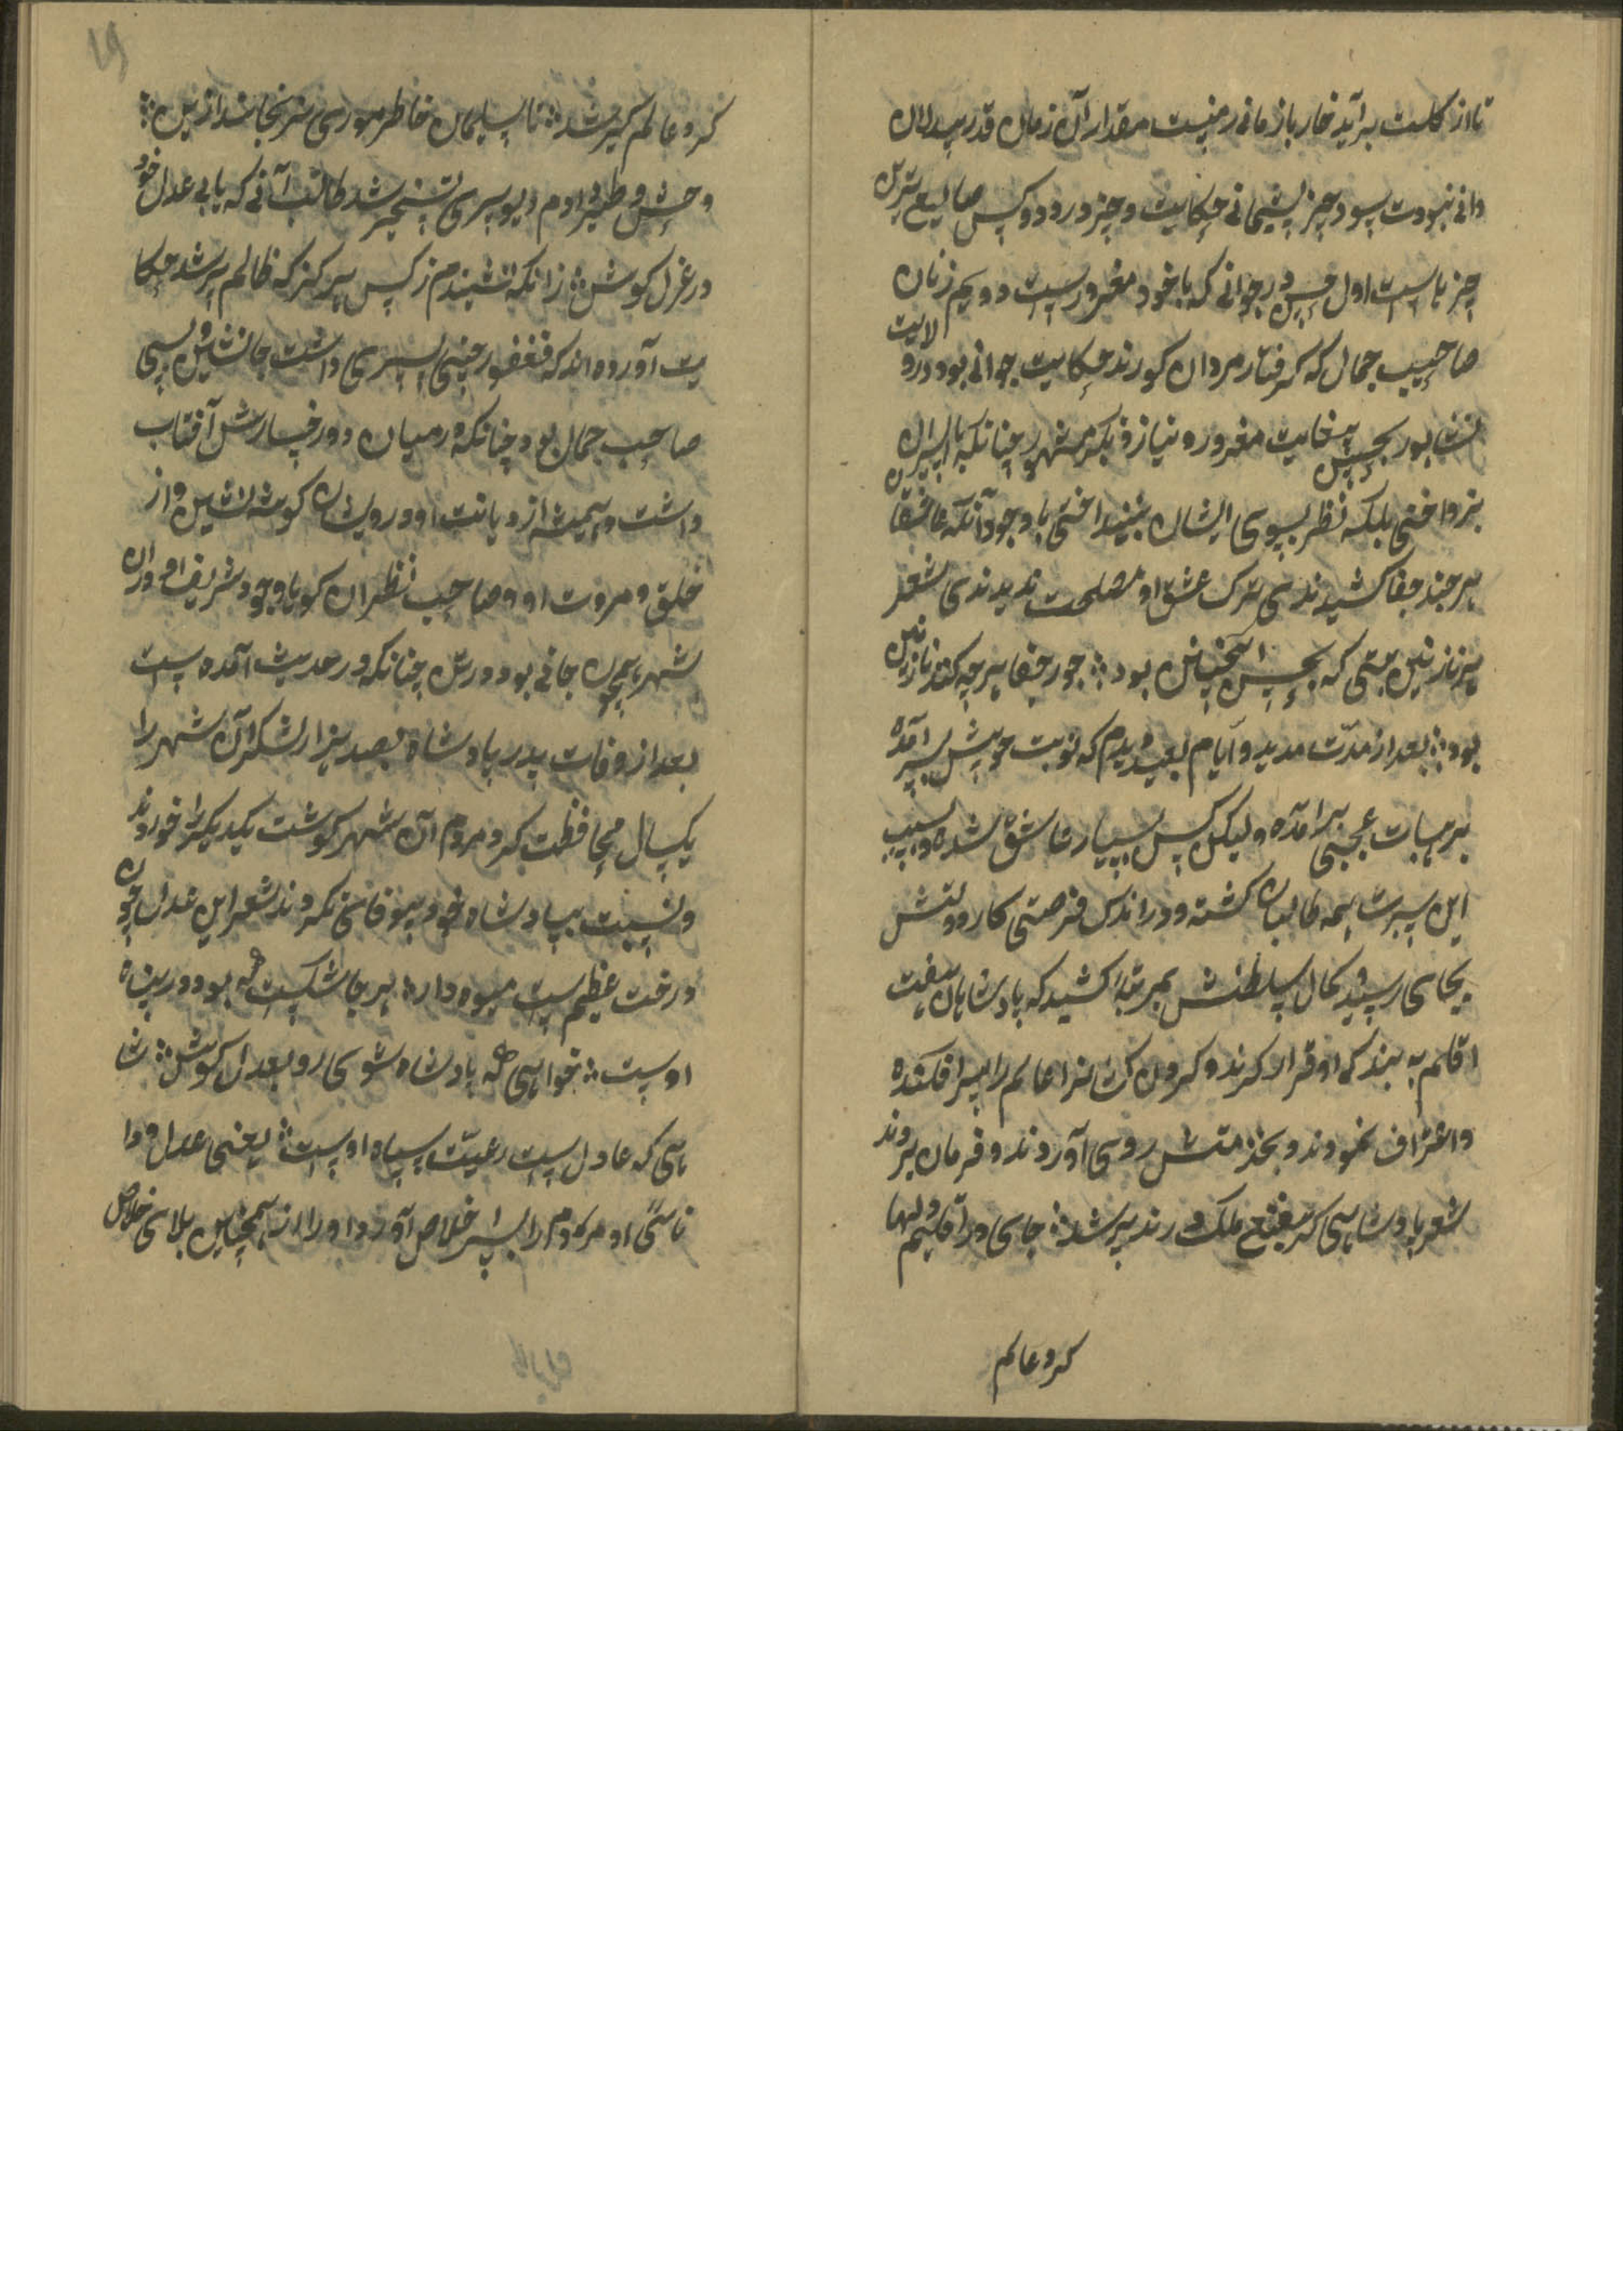 تا از کلست برآید خار باز مانی ز منیست مقدار آن زمان قدر بیدلان
دانی نبودت سود جز پشیمانی حکایت و چیز در دو کس ضایع ترین
چیز هاست اول حسن در جوانی که با خود مغرورست دویم زنان
صاحب جمال که گرفتار مردان کورند حکایت جوانی بود در ولایت
نشابور بحسن بغایت مغرور و نیاز و بکر مشهور چنانکه با اسیران
نپرداختی بلکه نظر بسوی ایشان نینداختی با وجود آنکه عاشقان
هر چند جفا کشیدندی ترک عشق او مصلحت ندیدندی شعر
هر نازنین بتی که بحسن آنچنان بود جور و جفا هر چه کند نازنین
بود بعد از مدت مدید و ایام بعید دیدم که نوبت حویش بسر آمده
برهیات عجبی برآمده و لیکن کس بسیار عاشق شده و بسبب
این سیرت همه طالبان گشته و در اندک فرصتی کار دولتش
بجای رسید و کمال سلطنتش بمرتبه کشید که پادشاهان هفت
اقلم به بندگی او قرار کردند و گردن کشان عالم را سر افکنده
و اعتراف نمودند و بخدمتش روی آوردند و فرمان بردند
شعر پادشاهی کر بتیغ ملک در تدبیر شد جای در اقلیم دلها
کرد عالم
کرد عالم گیر شد تا سلیمان خاطر موری نرنجاند از زمین
وحش و طیر و ادم دیو پری تسخیر شد طالب آنی که یابی عدل خود
در عزل کوش زانکه نشنیدم ز کس هرگز که ظالم پیر شد حکا
یت آورده اند که فغفور چینی پسری داشت جانشین و بسی
صاحب جمال بود چنانکه در میان دو رخسارش آفتاب
داشت و همیشه از دیانت او درویشان گوشه نشین و از
خلق و مروت او و صاحب نظران گویا وجود شریف او در ان
شهر همچون جانی بود در تن چنانکه در حدیث آمده است
بعد از وفات پدر پادشاه بصد هزار لشکر آن شهر را
یکسال محافظت کرد مردم آن شهر گوشت یکدیگر را خوردند
و نسبت بپادشاه خود بیوفائی نکردند شعر این عدل چون
درخت عظیمست میوه دار هر جا شکسته بود در پناه
اوست خواهی که پادشاه شوی رو بعدل کوش شا
هی که عادلست رعیت سپاه اوست یعنی عدل و دا
نائی او مردم را بسر خلاص آورد او را از همچنین بلای خلاص